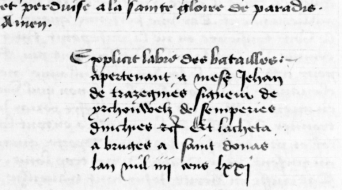 et perduise a la sainte gloire de paradis.
Amen.
Explicit labre des batailles :
apertenant a mess Jehan
de trazegnies signeur de
de semperies
dinchies Et lacheta
a bruges a saint donas
lan mil iiij cens lxxj